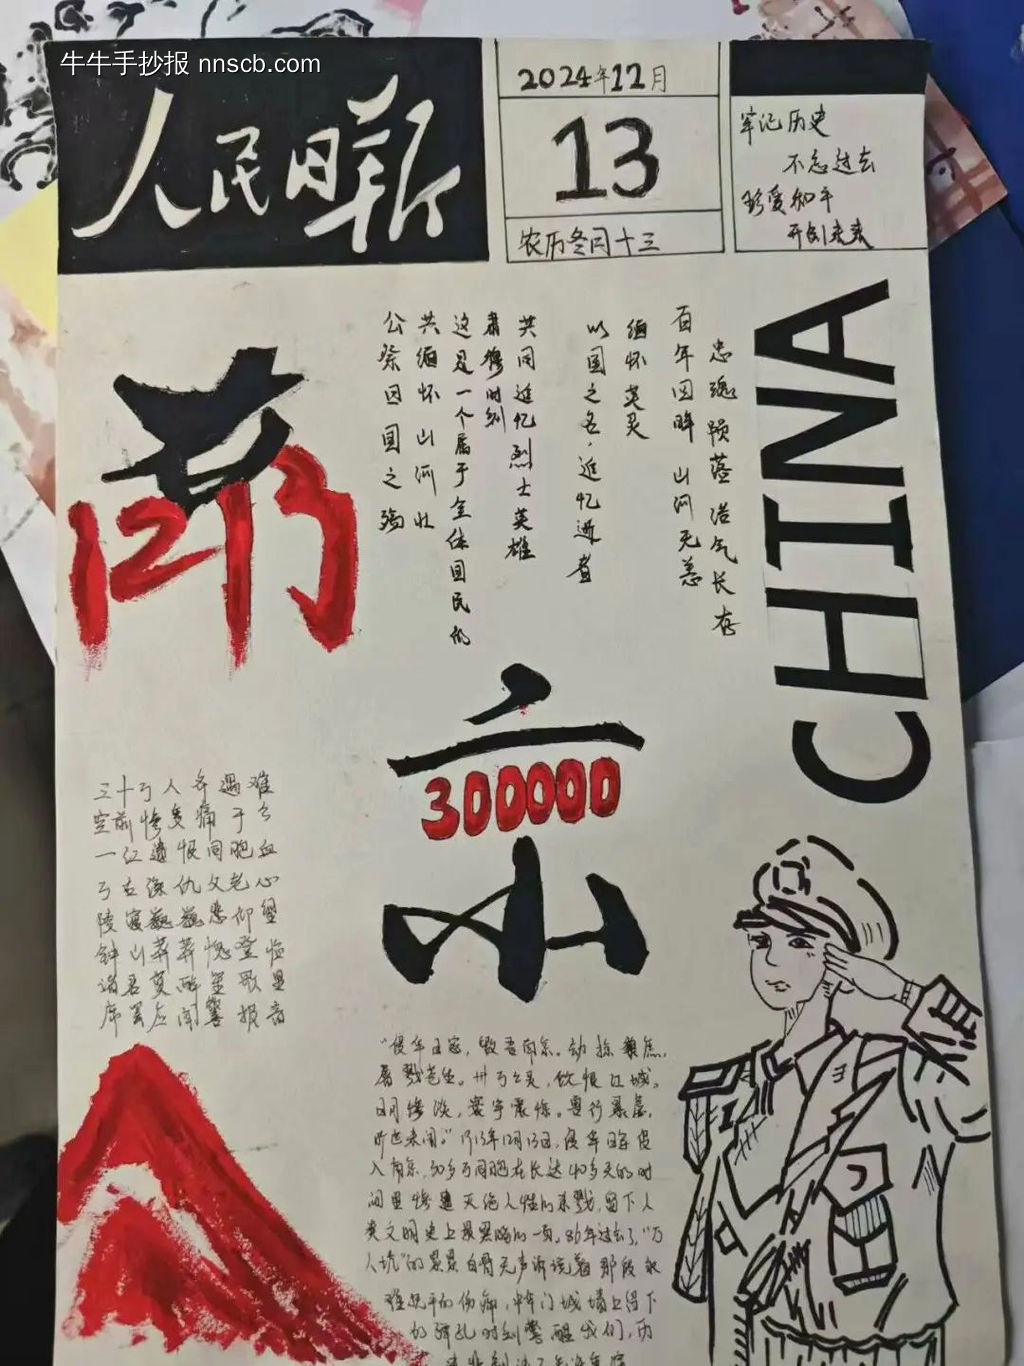 牛牛手抄报 nnscb.com
人民日
2024年12月
13
农历冬月十三
牢记历史
不忘过去
珍爱和平
开创未来
CHINA
忠魂陨落浩气长存
百年回眸 山河无恙
缅怀英灵
以国之名,追忆逝者
共同追忆烈士英雄
肃穆时刻
这是一个属于全体国民的
共缅怀 山河壮
公祭日 国之殇
南
1213
京
300000
三十万人齐遇难
空前惨
一江遗恨同胞血
深仇父老心
陵寝巍巍悲仰望
钟山莽莽愧登临
诸君莫醉笙歌里
闻警报音
"侵华日寇,毁吾南京。劫掠
屠戮苍生。卅万亡灵,饮恨江城。
日月惨淡,寰宇震惊。兽行暴虐,
月13日,侵华日军侵
入南京,30多万同胞在长达40多天的时
间里惨遭灭绝人性的杀戮,留下人
类文明史上最黑暗的一页。86年过去了,"万
人坑"的累累白骨无声诉说着那段
的伤痛,中华门城墙上留下
的弹孔时刻警醒我们,历